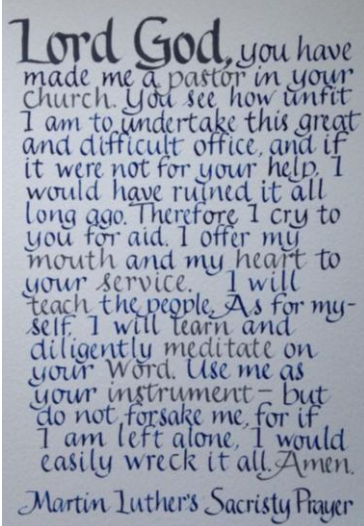 Lord God, you have
made me a pastor in your
church. You see how unfit
I am to undertake this great
and difficult office, and if
it were not for your help, I
would have ruined it all
long ago. Therefore I cry to
you for aid. I offer my
mouth and my heart to
your service. I will
teach the people. As for my-
self, I will learn and
diligently meditate on
your Word. Use me as
your instrument — but
do not forsake me, for if
I am left alone, I would
easily wreck it all. Amen.
Martin Luther's Sacristy Prayer